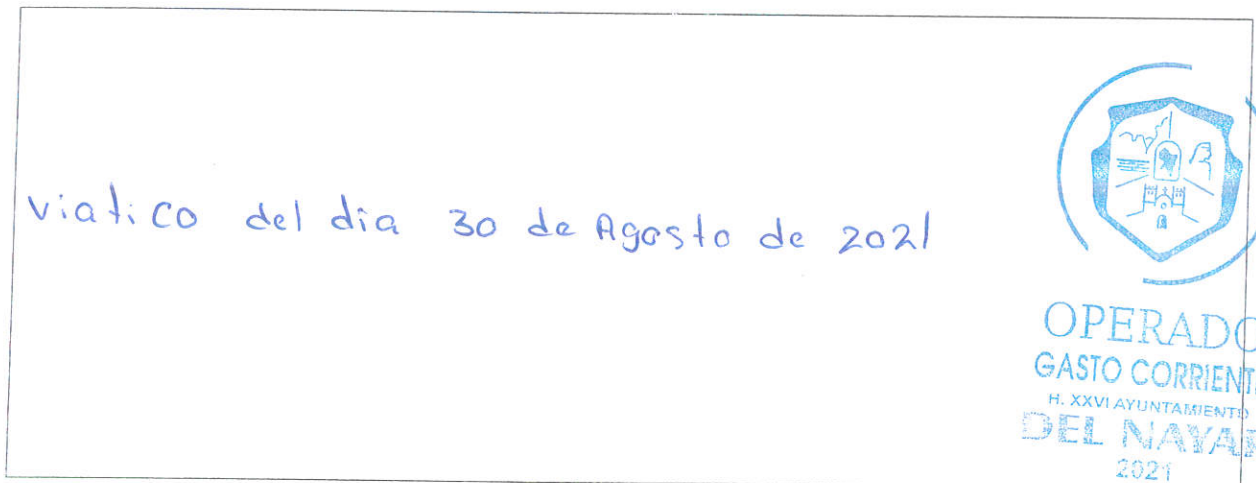 viatico del dia 30 de Agosto de 2021
OPERADO
GASTO CORRIENT
H. XXVI AYUNTAMIENTO
DEL NAYAR
2021